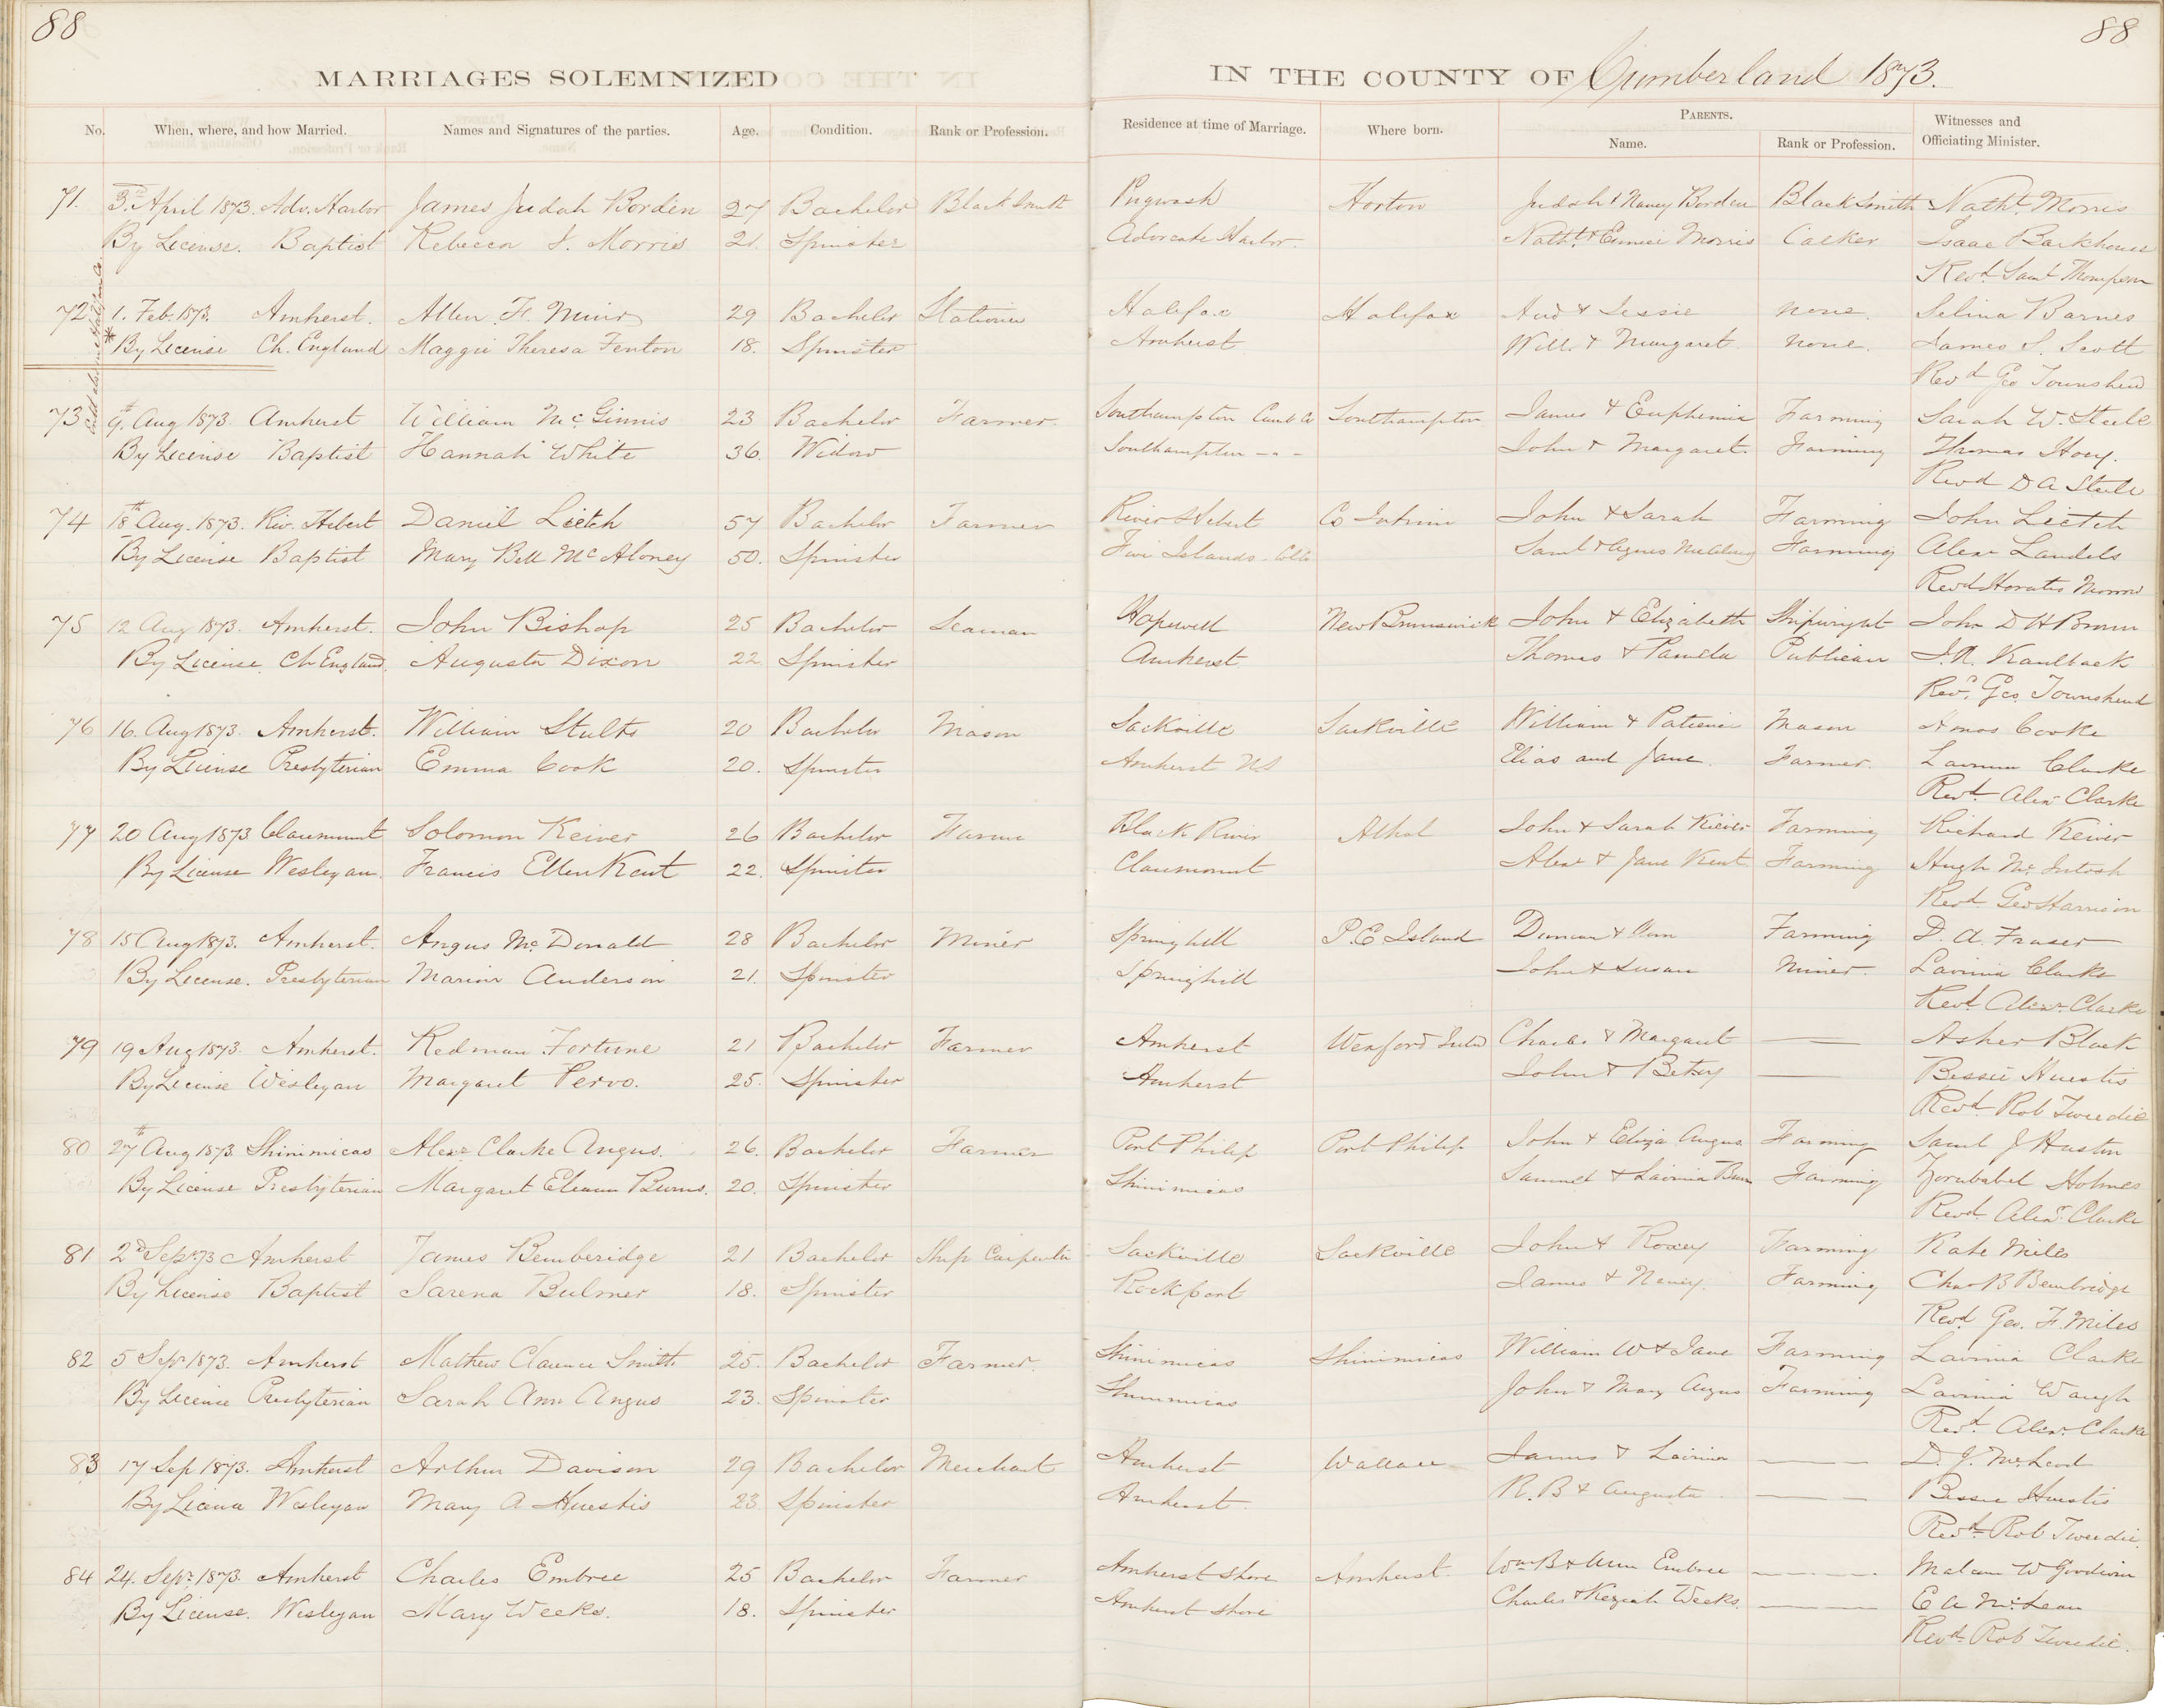 88
88
MARRIAGES SOLEMNIZED IN THE COUNTY OF Cumberland 1873.
No. When, where, and how Married. Names and Signatures of the parties. Age. Condition. Rank or Profession. Residence at time of Marriage. Where born. PARENTS. Name. Rank or Profession. Witnesses and Officiating Minister.
71. 3d. April 1873. Adv. Harbor James Judah Borden 27 Bachelor Black Smith Pugwash Horton Judah & Nancy Borden Black Smith Nathl. Morris
By License. Baptist Rebecca J. Morris 21. Spinster Advocate Harbor. Nathl. & Eunice Morris Calker Isaac Barkhouse
Revd. Saml Thompson
72 1. Feb. 1873. Amherst. Allen F. Muir 29 Bachelor Stationer Halifax Halifax And & Jessie none. Selina Barnes
* By License Ch. England Maggie Theresa Fenton 18. Spinster Amherst Will. & Margaret none. James S. Scott
Revd Geo Townshend
73 9th. Aug 1873. Amherst William McGinnis 23 Bachelor Farmer. Southampton Cumb Co Southampton James & Euphemia Farming Sarah W. Steele
By License Baptist Hannah White 36. Widow Southampton - " - John & Margaret. Farming Thomas Hoey.
Revd D A Steele
74 18th Aug. 1873. Riv. Hebert Daniel Lietch 57 Bachelor Farmer River Hebert Co Antrim John & Sarah Farming John Lietch
By License Baptist Mary Bell McAloney 50. Spinster Five Islands Colc. Saml & Agnes McAloney Farming Alexr Landels
Revd Horatio Morrow
75 12 Aug 1873. Amherst. John Bishop 25 Bachelor Seaman Hopewell New Brunswick John & Elizabeth Shipwright John D H Brown
By License. Ch England. Augusta Dixon 22 Spinster Amherst Thomas & Pamela Publican J. R. Kaulback
Revd. Geo. Townshend
76 16. Aug 1873. Amherst. William Stults 20 Bachelor Mason Sackville Sackville William & Patience Mason Amos Cooke
By License Presbyterian Emma Cook 20. Spinster Amherst NS Elias and Jane. Farmer. Clarke
Revd. Alexr Clarke
77 20 Aug 1873 Claremount Solomon Keiver 26 Bachelor Farmer Black River Athol John & Sarah Keiver Farming Richard Keiver
By License Wesleyan. Francis Ellen Kent 22. Spinster Claremount Alexr & Jane Kent Farming Hugh McIntosh
Revd. Geo Harrison
78 15 Aug 1873. Amherst. Angus McDonald 28 Bachelor Miner Springhill P.E Island Duncan & Ann Farming D. A. Fraser
By License. Presbyterian Marion Anderson 21. Spinster Springhill John & Susan Miner. Lavinia Clarke
Revd. Alexr. Clarke
79 19 Aug 1873. Amherst. Redman Fortune 21 Bachelor Farmer Amherst Wexford Irld Charles & Margaret — Asher Black
By License Wesleyan Margaret Pervo. 25. Spinster Amherst John & Betsy — Bessie Huestis
Revd. Rob Tweedie
80 27th Aug 1873 Shinimicas Alexr Clarke Angus. 26. Bachelor Farmer Port Philip Port Philip John & Eliza Angus Farming Saml J Huston
By License Presbyterian Margaret Eleanor Burns. 20. Spinster Shinimicas Samuel & Lavinia Burns Farming Zorubabel Holmes
Revd. Alexr. Clarke
81 2d Sepr 73 Amherst James Bemberidge 21 Bachelor Ship Carpenter Sackville Sackville John & Roxey Farming Kate Miles
By License Baptist Sarena Bulmer 18. Spinster Rockport James & Nancy. Farming Chas B Bembridge
Revd. Geo. F. Miles
82 5 Sepr 1873. Amherst Mathew Clarence Smith 25. Bachelor Farmer. Shinimicas Shinimicas William W & Jane Farming Lavinia Clarke
By License Presbyterian Sarah Ann Angus 23. Spinster Shinimicas John & Mary Angus Farming Lavinia Waugh
Revd. Alexr. Clarke
83 17 Sep 1873. Amherst Arthur Davison 29 Bachelor Merchant Amherst Wallace James & Lavinia — D. J. McLeod
By License Wesleyan Mary A. Huestis 23 Spinster Amherst. R. B & Augusta — Bessie Huestis
Revd. Rob Tweedie.
84 24. Sepr. 1873. Amherst Charles Embree 25 Bachelor Farmer Amherst Shore Amherst. Wm B & Ann Embree — W Goodwin
By License. Wesleyan Mary Weeks. 18. Spinster Amherst Shore Charles & Keziah Weeks. — E A McLean
Revd. Rob Tweedie.